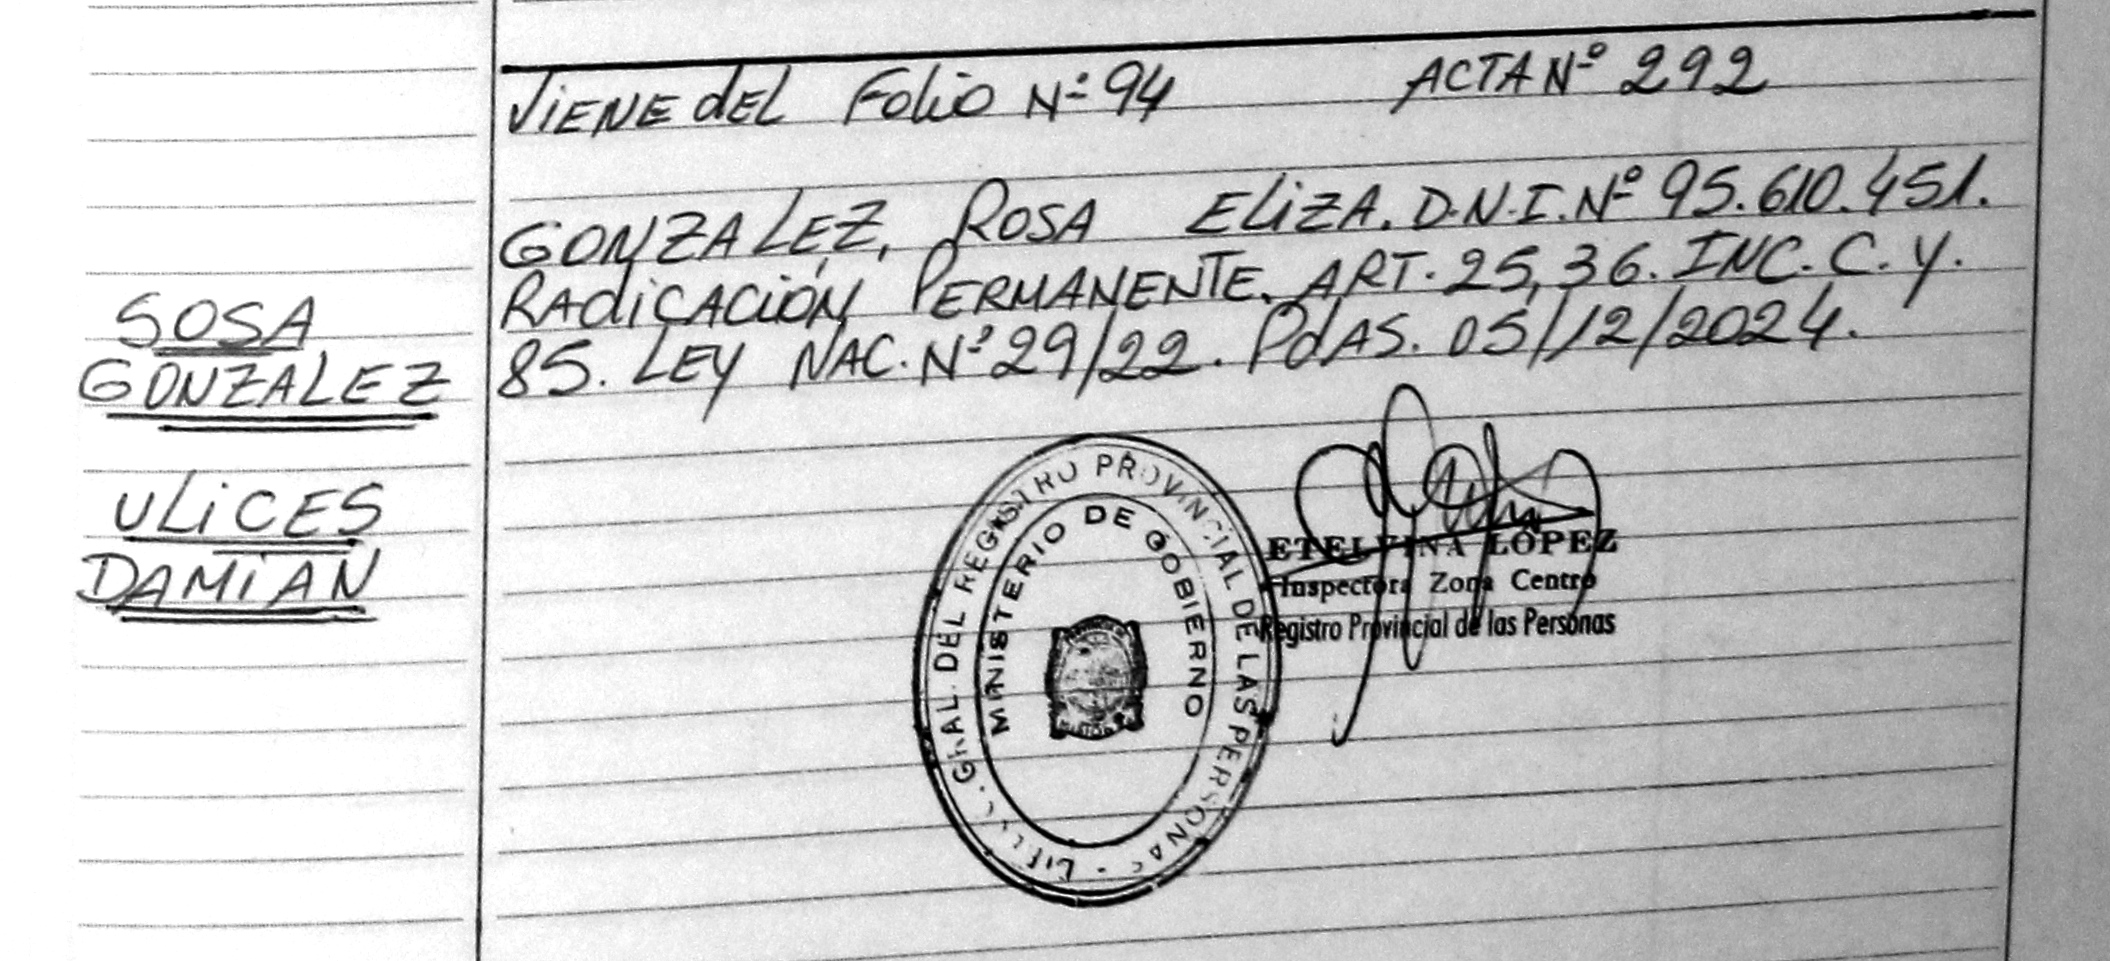 VIENE dEL Folio Nº 94 ACTA Nº 292
GONZALEZ, ROSA ELiZA. D.N.I. Nº 95.610.451.
RAdiCACiÓN PERMANENTE. ART. 25, 36. INC. C. Y.
85. LEY NAC. Nº 29/22. PdAS. 05/12/2024.
SOSA
GONZALEZ
ULiCES
DAMiAN
GRAL. DEL REGISTRO PROVINCIAL DE LAS PERSONAS
MINISTERIO DE GOBIERNO
ETELVINA LÓPEZ
Inspectora Zona Centro
Registro Provincial de las Personas